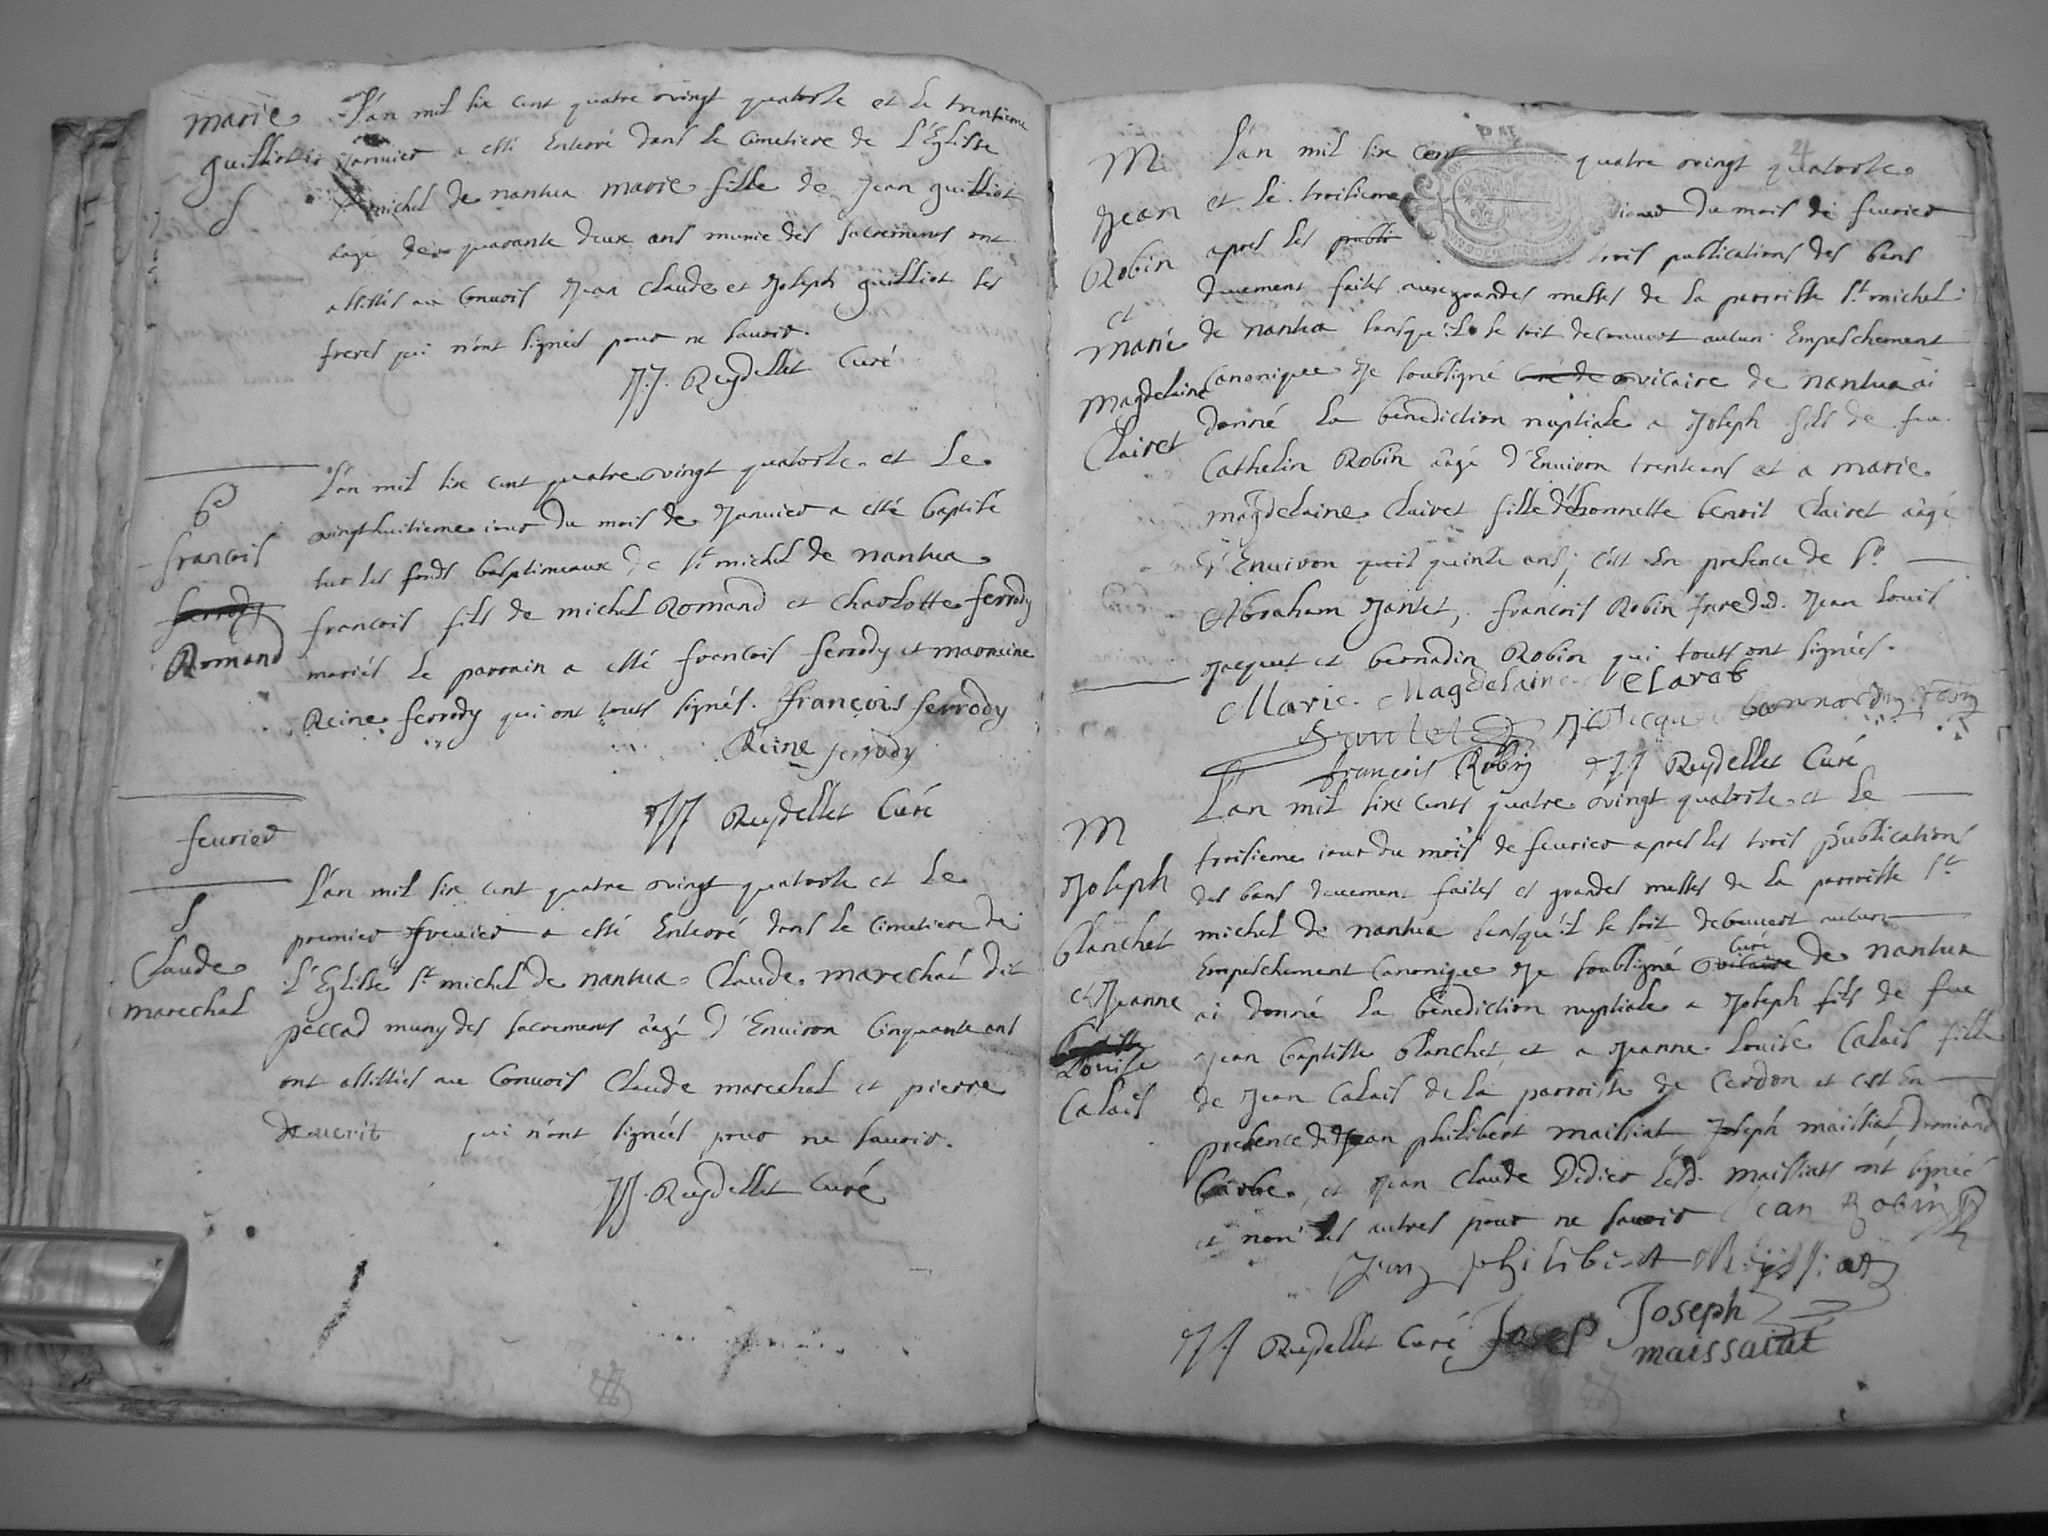 marie
guilliot
S
L'an mil six cent quatre vingt quatorse et le trentieme
Janvier a esté Enterré dans le cimetiere de l'Eglisse
St michel de nantua marie fille de Jean guilliot
aagé de quarante deux ans munie des sacrements ont
assistés au Convois Jean Claude et Joseph guilliot ses
freres qui n'ont signéés pour ne savoir.
JJ. Reydellet Curé
b
francois
Romand
L'an mil six cent quatre vingt quatorse et Le
vingthuitieme iour du mois de Janvier a esté baptisé
sur les fonds baptimeaux de St michel de nantua
francois fils de michel Romand et charlotte ferrody
mariés Le parrain a esté francois ferrody et marreine
Reine ferrody qui ont touts signés. françois ferrody
Reine ferrody
JJ Reydellet Curé
feurier
S
Claude
marechal
L'an mil six cent quatre vingt quatorse et Le
premier feurier a esté Enterré dans le cimetiere de
L'Eglisse St michel de nantua Claude marechal dit
peccad muny des sacrements âagé d'Environ Cinquante ans
ont assistés au Convois Claude marechal et pierre
qui n'ont signéés pour ne savoir.
JJ. Reydellet Curé
M
Jean
Robin
et
Marie
Magdelaine
Clairet
L'an mil six cent quatre vingt quatorse
et le troisieme iour du mois de feurier
apres les publi trois publications des bans
duement faites aux grandes messes de la parroisse St michel
de nantua sans qu'il se soit decouvert aucun Empeschement
Canonique Je soubsigné vicaire de nantua ai
donné La bénediction nuptiale a Joseph fils de feu
Cathelin Robin âagé d'Environ trente ans et a marie
magdelaine Clairet fille d'honneste benoit Clairet âagé
d'Environ quinse ans; c'est En presence de Sr
Abraham Jantet, francois Robin Jean Louis
Jacquet et bernadin Robin qui touts ont signéés.
Marie Magdelaine Claret
Jantet
francois Robin JJ Reydellet Curé
M
Joseph
Planchet
et Jeanne
Louise
Calais
L'an mil six cents quatre vingt quatorse et Le
troisieme iour du mois de feurier apres les trois publications
des bans duement faites et grandes messes de La parroisse St
michel de nantua sans qu'il se soit decouvert aucun
Empeschement Canonique Je soubsigné vicaire Curé de nantua
ai donné La bénediction nuptiale a Joseph fils de feu
Jean baptiste Planchet et a Jeanne Louise Calais fille
de Jean Calais de La parroisse de Cerdon et est En
presence de Jean philibert maissiat Joseph maissiat,
barbe, et Jean Claude Didier Lesd. maissiats ont signéé
et non les autres pour ne savoir Jean Robin
Jean philibert Maissiat
JJ Reydellet Curé Josep Joseph
maissaiat